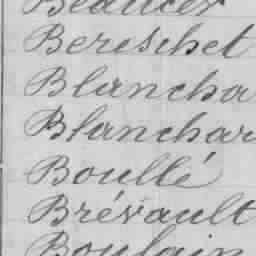 Bereschet
Blancha
Blanchar
Boullé
Brévault
Boulain